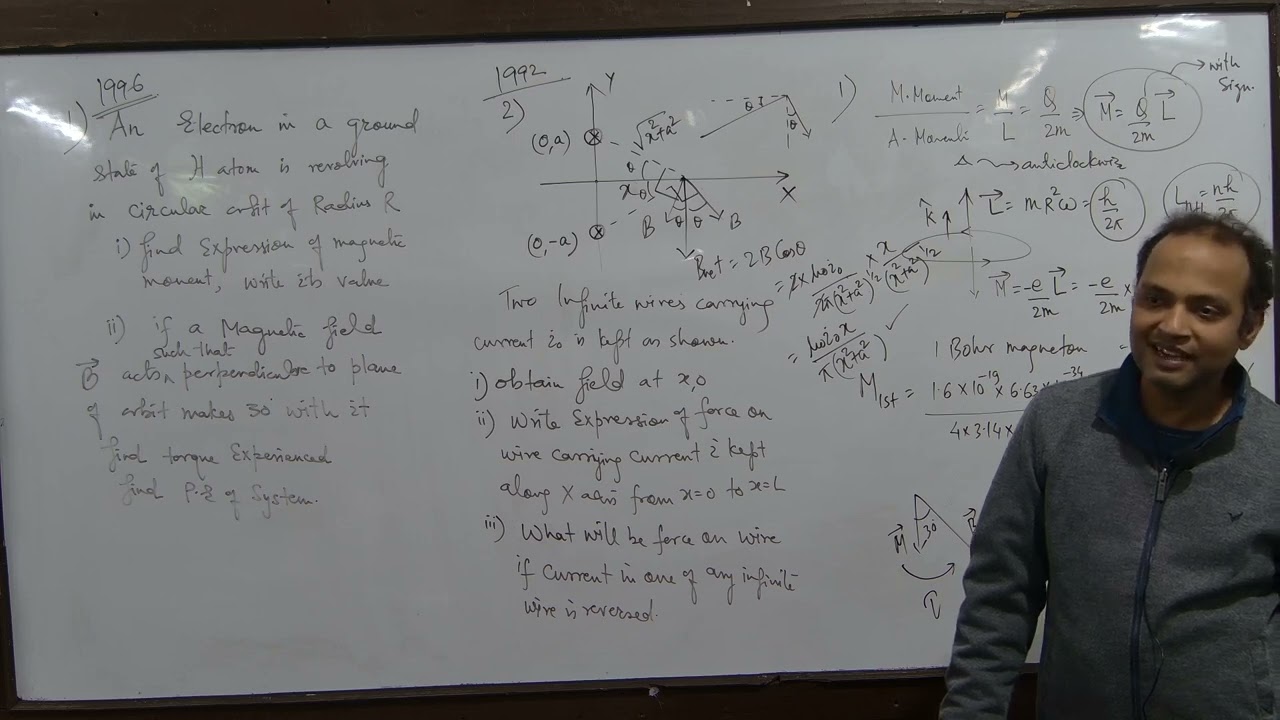 1996
1) An Electron in a ground
state of H atom is revolving
in circular orbit of Radius R
i) find Expression of magnetic
moment, write its value
ii) if a Magnetic field
such that
B⃗ acts ‸ perpendicular to plane
of orbit makes 30° with it
find torque Experienced
find P.E of System.
1992
2)
Y
(0,a)
√x²+a²
θ
θ
θ
x
θ
X
(0,-a)
B θ θ B
Bnet = 2B Cosθ
= 2×μ₀i₀ / 2π(x²+a²)^1/2 × x / (x²+a²)^1/2
= μ₀i₀x / π(x²+a²) ✓
Two Infinite wires carrying
current i₀ is kept as shown.
i) obtain field at x,0
ii) Write Expression of force on
wire carrying current i kept
along X axis from x=0 to x=L
iii) What will be force on wire
if current in one of any infinite
wire is reversed.
1)
M.Moment / A.Momentu = M / L = Q / 2m ⇒ M⃗ = Q/2m L⃗
with
Sign.
anticlockwise
k̂ L⃗ = mR²ω = h/2π
= nh
M⃗ = -e/2m L⃗ = -e/2m ×
1 Bohr magneton =
M1st = 1.6×10⁻¹⁹ × 6.63 -34
4×3.14×
M⃗ 30°
τ